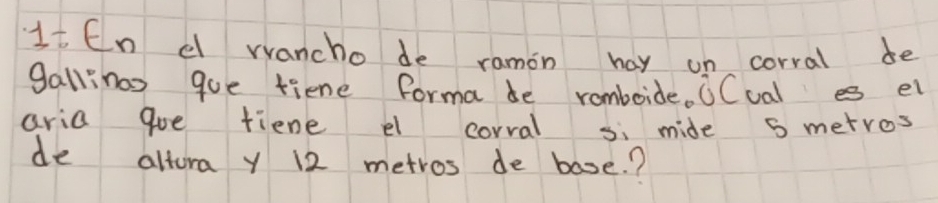 1= En el rrancho de ramón hay un corral de
gallinas que tiene forma de romboide. ¿Cual es el
aria que tiene el corral si mide 5 metros
de altura y 12 metros de base.?